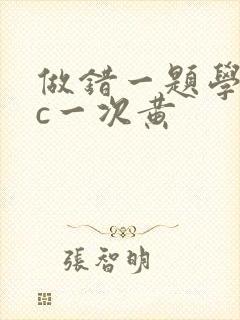 做錯一題學
c一次黃
張智明